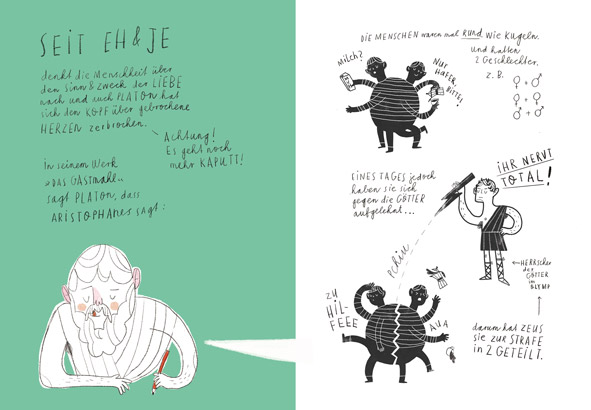 SEIT EH & JE
denkt die Menschheit über
den Sinn & Zweck der LIEBE
nach und auch PLATON hat
sich den KOPF über gebrochene
HERZEN zerbrochen.
Achtung!
Es geht noch
mehr KAPUTT!
In seinem Werk
»DAS GASTMAHL«
sagt PLATON, dass
ARISTOPHANES sagt:
DIE MENSCHEN waren mal RUND wie KUGELN.
und hatten
2 Geschlechter.
z.B.
♀ + ♂
♀ + ♀
♂ + ♂
MILCH?
NUR
HAFER,
BITTE!
EINES TAGES jedoch
haben sie sich
gegen die GÖTTER
aufgelehnt...
IHR NERVT
TOTAL!
HERRSCHER
der
GÖTTER
im
OLYMP
ZU
HIL-
FEEE
AUA
darum hat ZEUS
sie zur STRAFE
in 2 GETEILT.